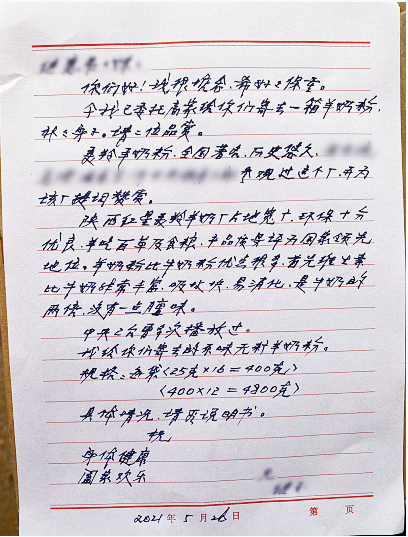 你们好！我很想念，希好好保重。
今我已委托高荣给你们寄去一箱羊奶粉，
补补身子。请二位品赏。
美羚羊奶粉，全国著名，历史悠久，
参观过这个厂，并为
该厂题词赞赏。
陕西红星美羚羊奶厂占地宽广，环保十分
优良，羊吃百草及食粮，产品质量评为国家领先
地位。羊奶粉比牛奶粉优点很多，首先维生素
比牛奶粉丰富，吸收快，易消化，是牛奶的
两倍，没有一点膻味。
中央2台曾多次播放过。
我给你们寄去的系味无籽羊奶粉。
规格：每袋(25克×16=400克)
(400×12=4800克)
具体情况，请页说明书。
祝
身体健康
阖家欢乐
2021年5月26日
第 页